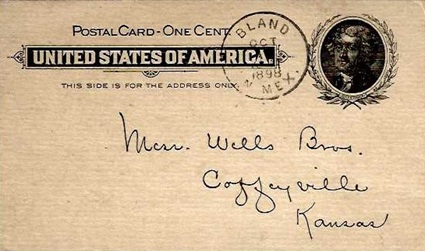 POSTAL CARD - ONE CENT.
UNITED STATES OF AMERICA.
THIS SIDE IS FOR THE ADDRESS ONLY.
BLAND
OCT
1898
N. MEX.
Messrs. Wells Bros.
Coffeyville
Kansas